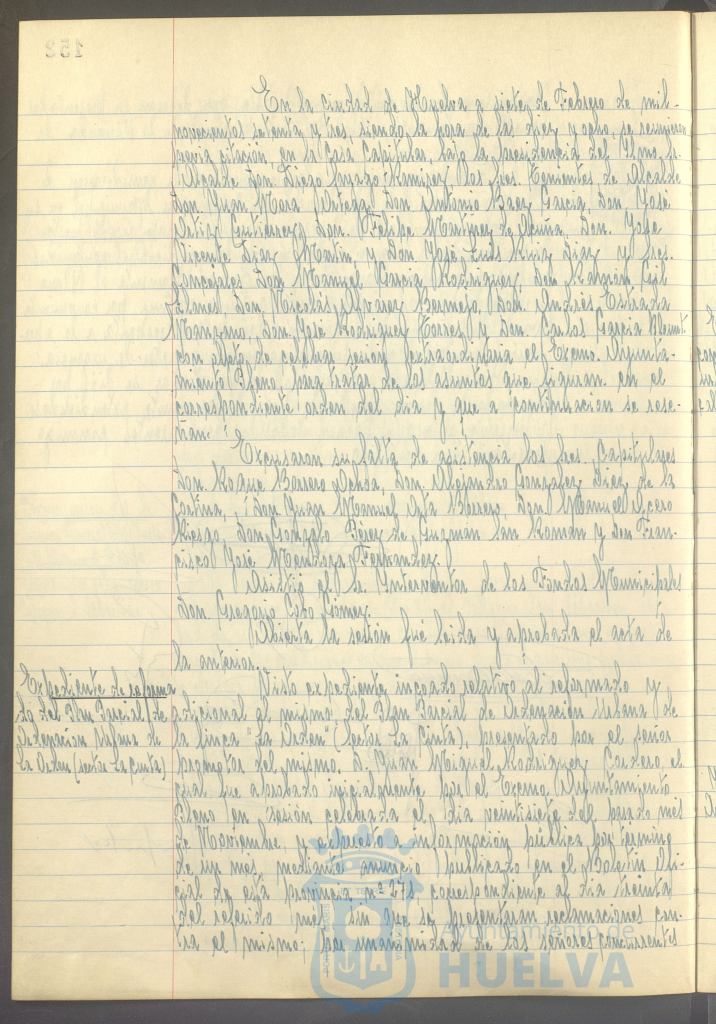 En la ciudad de Huelva a siete de Febrero de mil
novecientos setenta y tres, siendo la hora de las diez y ocho, se reunieron
previa citación, en la Casa Capitular, bajo la presidencia del Iltmo. Sr.
Alcalde Don Diego Ramirez los Sres. Tenientes de Alcalde
Don Juan Mora Don Antonio Baez Garcia, Don José
Ortiz Gutierrez, Don Felipe Martinez de Acuña, Don José
Vicente Diaz Martin, y Don José Luis Ruiz Diaz y Sres.
Concejales Don Manuel Garcia Rodriguez, Don Ramon Gil
Llanes, Don Nicolás Alvarez Bermejo, Don Andrés Estrada
Manzano, Don José Rodriguez Torres y Don Carlos Garcia
con objeto de celebrar sesión extraordinaria el Excmo. Ayunta-
miento Pleno, para tratar de los asuntos que figuran en el
correspondiente orden del dia y que a continuacion se rese-
ñan.
Excusaron su falta de asistencia los Sres. Capitulares
Don Roque Barrero Ochoa, Don Alejandro Gonzalez Diez de la
Cortina, Don Juan Manuel Borrero, Don Manuel Acero
Riesgo, Don Gonzalo Pérez de Guzmán San Román y Don Fran-
cisco José Mendoza Fernandez.
Asistió el Sr. Interventor de los Fondos Municipales
Don Gregorio Cobo Gómez.
Abierta la sesión fué leida y aprobada el acta de
la anterior.
Expediente de reforma
do del Plan Parcial de
Ordenacion Urbana de
La Orden (sector La Cinta)
Visto expediente incoado relativo al reformado y
adicional al mismo, del Plan Parcial de Ordenación Urbana de
la finca "La Orden" (sector La Cinta), presentado por el señor
promotor del mismo. D. Juan Miguel Rodriguez Cordero el
cual fue aprobado inicialmente por el Excmo. Ayuntamiento
Pleno en sesión celebrada el dia veintisiete del pasado mes
de Noviembre, y expuesto a información pública por término
de un mes, mediante anuncio publicado en el Boletin Ofi-
cial de esta provincia nº 271 correspondiente al dia treinta
del referido mes, sin que se presentaran reclamaciones con-
tra el mismo; por unanimidad de los señores concurrentes
Ayuntamiento de
HUELVA